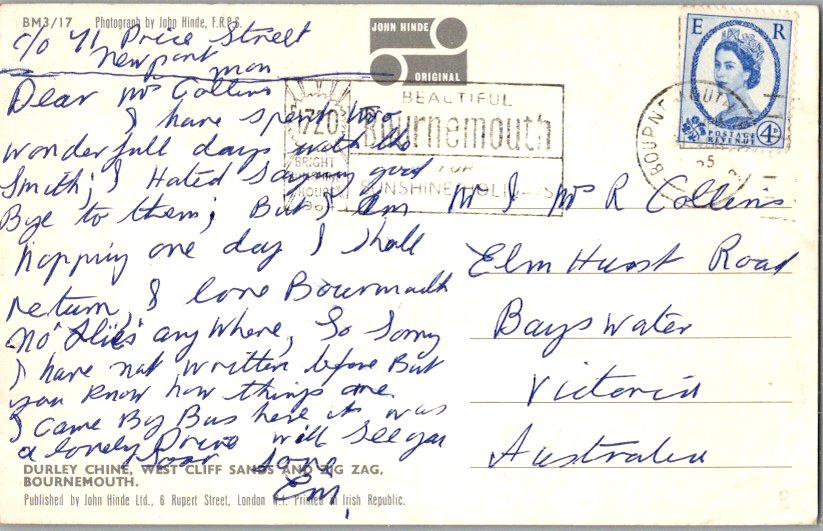 BM3/17 Photograph by John Hinde, F.R.P.S.
JOHN HINDE
ORIGINAL
c/o 41 Price Street
Newport
mon
Dear Mrs Collins
I have spent two
wonderfull days with the
Smith; I Hated saying good
Bye to them; But I am
hopping one day I shall
return, I love Bourmouth
no "flies" any where, So Sorry
I have not written before But
you know how things are.
I came By Bus here it was
a lovely Drive will see you
Soon
Em,
DURLEY CHINE, WEST CLIFF SANDS AND ZIG ZAG,
BOURNEMOUTH.
Published by John Hinde Ltd., 6 Rupert Street, London W.1. Printed in Irish Republic.
1720
BRIGHT
HOURS
BEAUTIFUL
Bournemouth
FOR
SUNSHINE HOLIDAYS
E R
POSTAGE
REVENUE 4D
BOURNEMOUTH
65
Mr & Mrs R Collins
Elm Hurst Road
Bayswater
Victoria
Australia